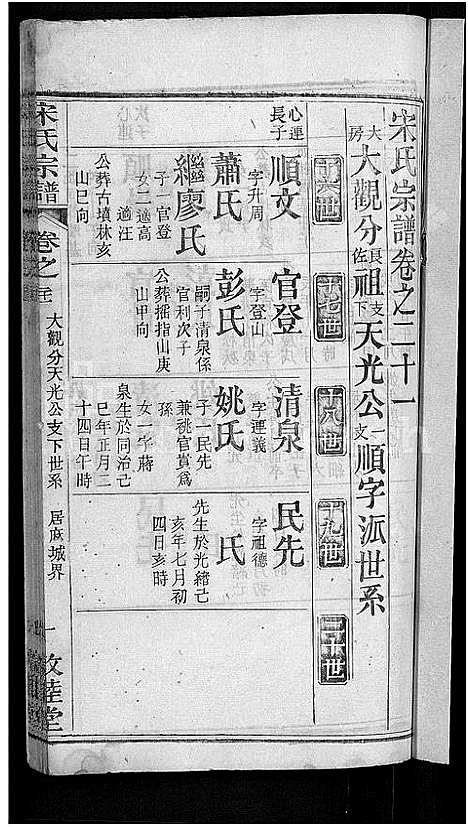 宋氏宗譜卷之二十一
大房大觀分長佐祖支下天光公一支順字派世系
十六世
十七世
十八世
十九世
二十世
心連長子
順文
字升周
蕭氏
繼廖氏
子一官登
女二適高
適汪
公葬古墳林亥
山巳向
官登
字登山
彭氏
嗣子清泉係
官利次子
公葬摇指山庚
山甲向
清泉
字連義
姚氏
子一民先
兼祧官賓為
孫
女一字蔣
泉生於同治己
巳年正月二
十四日午時
民先
字祖德
氏
先生於光緒己
亥年七月初
四日亥時
宋氏宗譜
卷之
大觀分天光公支下世系
居麻城界
一
敦睦堂